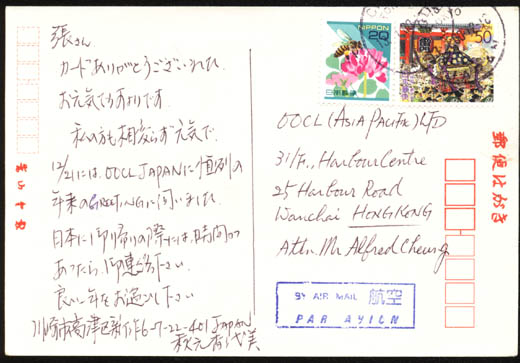 張さん
カードありがとうございました。
お元気でなによりです。
私の方も相変らず元気で、
12/21には、OOCL JAPANに恒例の
年末のGREETINGに伺いました。
日本に御帰りの際には、時間が
あったら、御連絡下さい。
良い年をお過し下さい。
川崎市高津区新作6-7-22-401 JAPAN
NIPPON
20
日本郵便
50
OOCL (ASIA PACIFIC) LTD
31/F., Harbour Centre
25 Harbour Road
Wanchai HONG KONG
Attn. Mr Alfred Cheung
BY AIR MAIL 航空
PAR AVION
郵便はがき